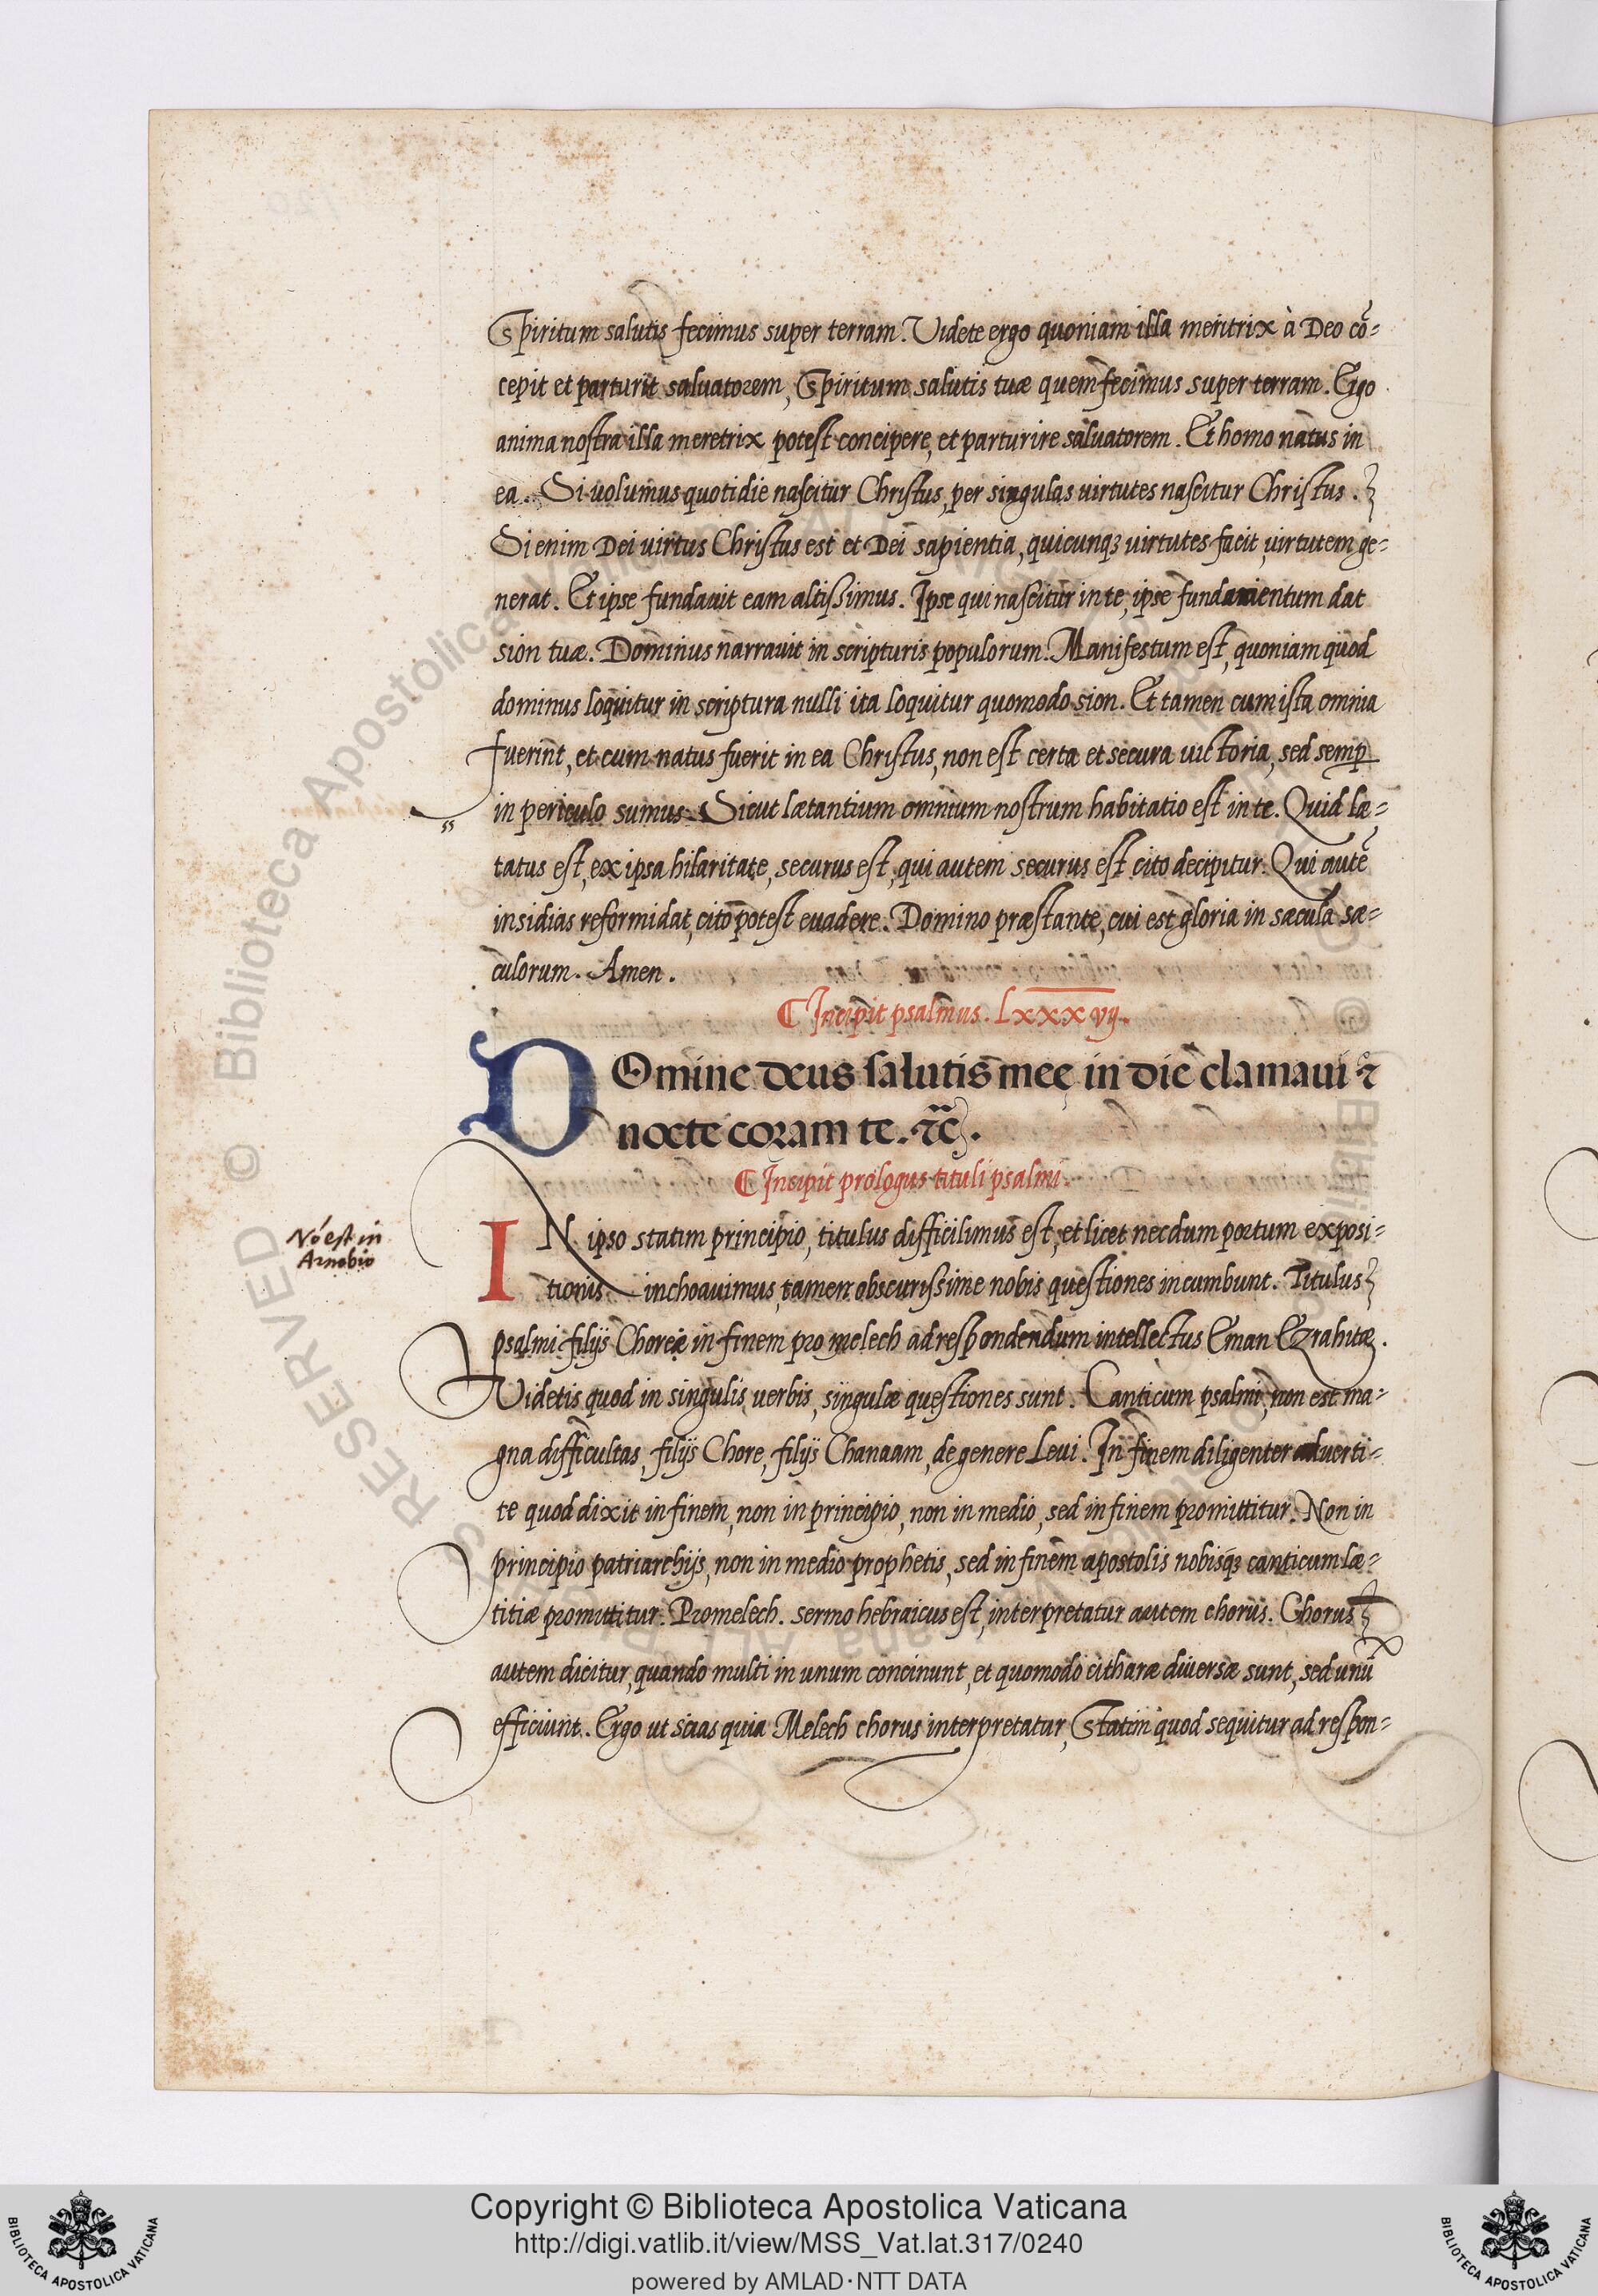 Spiritum salutis fecimus super terram. Videte ergo quoniam illa meritrix à Deo cō=
cepit et parturit saluatorem, Spiritum salutis tuæ quem fecimus super terram. Ergo
anima nostra illa meretrix potest concipere, et parturire saluatorem. Et homo natus in
ea. Si uolumus quotidie nascitur Christus, per singulas virtutes nascitur Christus.
Si enim Dei virtus Christus est et Dei sapientia, quicunqꝫ virtutes facit, virtutem ge=
nerat. Et ipse fundauit eam altissimus. Ipse qui nascitur in te, ipse fundamentum dat
sion tuæ. Dominus narrauit in scripturis populorum. Manifestum est, quoniam quod
dominus loquitur in scriptura nulli ita loquitur quomodo sion. Et tamen cum ista omnia
fuerint, et cum natus fuerit in ea Christus, non est certa et secura uictoria, sed semꝑ
in periculo sumus. Sicut lætantium omnium nostrum habitatio est in te. Quid læ=
tatus est, ex ipsa hilaritate, securus est, qui autem securus est cito decipitur. Qui autē
insidias reformidat, cito potest euadere. Domino præstante, cui est gloria in sæcula sæ=
culorum. Amen.
¶ Incipit psalmus. Lxxxvij.
DOmine deus salutis meę in die clamaui ⁊
nocte coram te. ⁊c̄.
¶ Incipit prologus tituli psalmi.
IN ipso statim principio, titulus difficilimus est, et licet necdum portum exposi=
Nō est in
Arnobio
tionis inchoauimus, tamen obscurissime nobis questiones incumbunt. Titulus
psalmi filijs Choreæ in finem pro melech ad respondendum intellectus Eman Ezrahitæ.
Videtis quod in singulis verbis, singulæ questiones sunt. Canticum psalmi, non est ma=
gna difficultas, filijs Chore, filijs Chanaam, de genere Leui. In finem diligenter aduerti=
te quod dixit in finem, non in principio, non in medio, sed in finem promittitur. Non in
principio patriarchijs, non in medio prophetis, sed in finem apostolis nobisqꝫ canticum læ=
titiæ promittitur. Promelech. sermo hebraicus est, interpretatur autem chorus. Chorus
autem dicitur, quando multi in unum concinunt, et quomodo citharæ diuersæ sunt, sed unū
efficiunt. Ergo ut scias quia Melech chorus interpretatur, Statim quod sequitur ad respon=
Copyright © Biblioteca Apostolica Vaticana
http://digi.vatlib.it/view/MSS_Vat.lat.317/0240
powered by AMLAD·NTT DATA
BIBLIOTECA APOSTOLICA VATICANA
BIBLIOTECA APOSTOLICA VATICANA